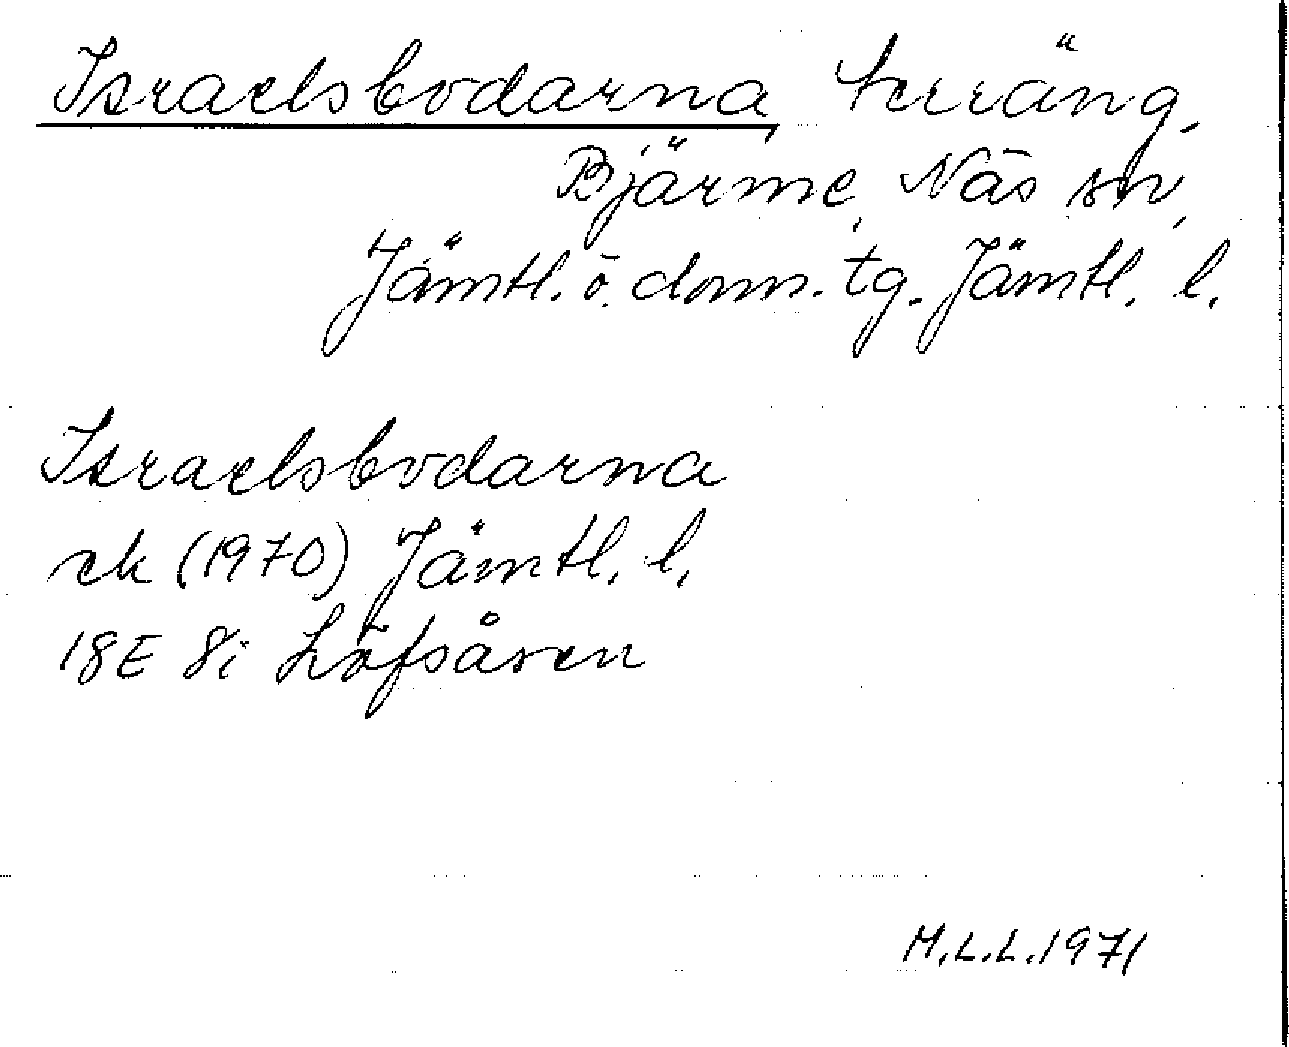 Israelsbodarna, terräng,
Bjärme, Näs sn,
Jämtl. ö. doms. tg. Jämtl. l.
Israelsbodarna
ek (1970) Jämtl. l.
18E 8i Löfsåsen
M.L.L. 1971